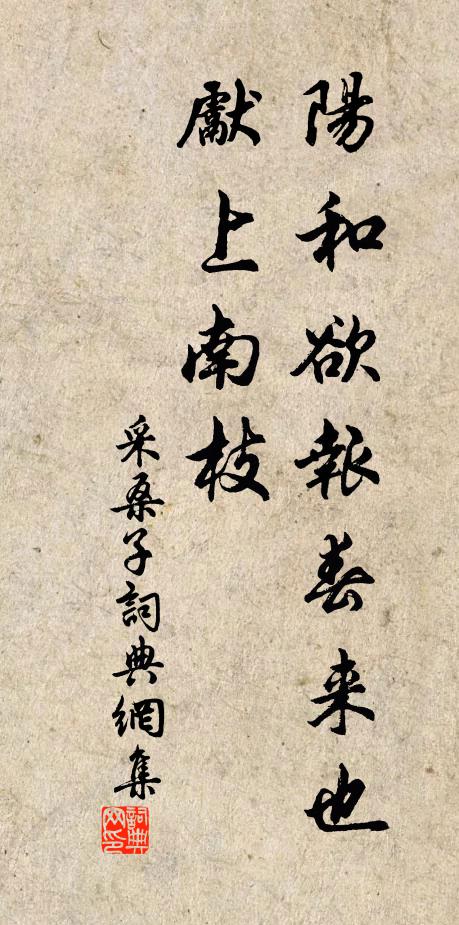 陽和欲報春来也
獻上南枝
采桑子詞典網集
詞典网印